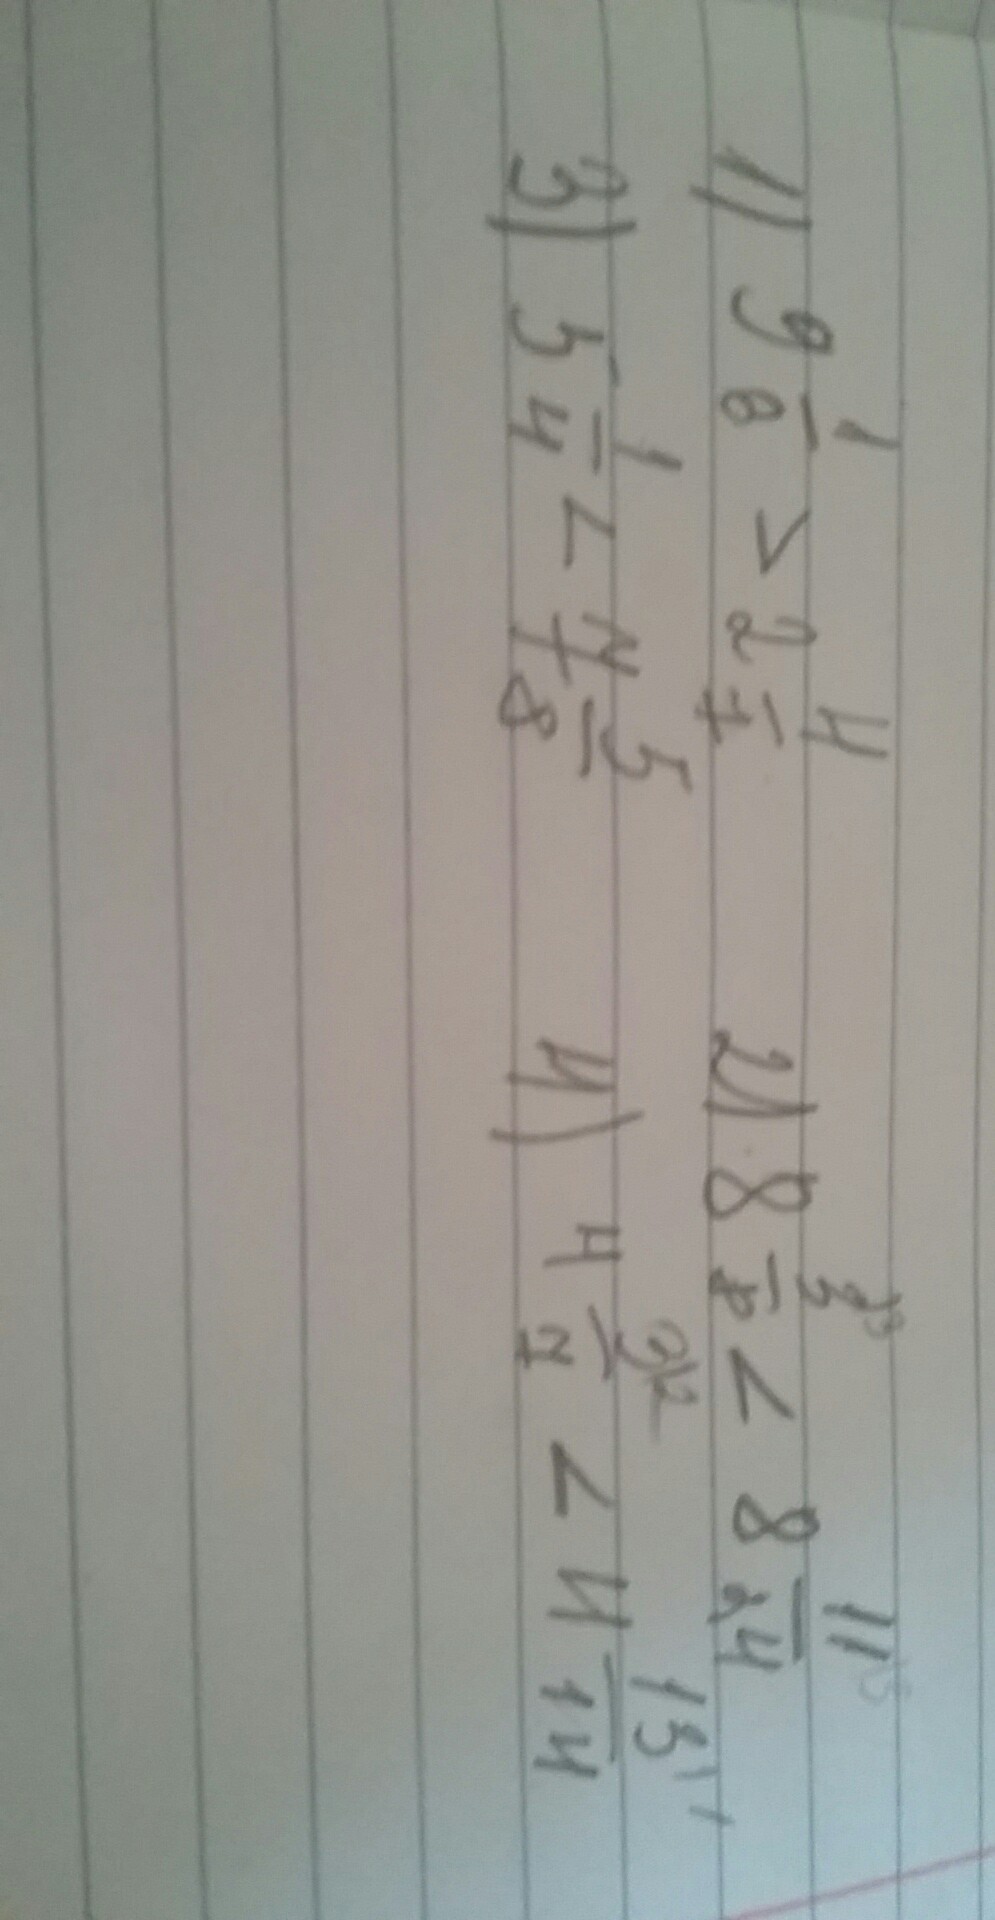 1) 9 1/8 > 2 4/7 2) 8 3/8 < 8 11/24
3) 5 1/4 < 7 5/8 4) 4 3/7 < 4 13/14